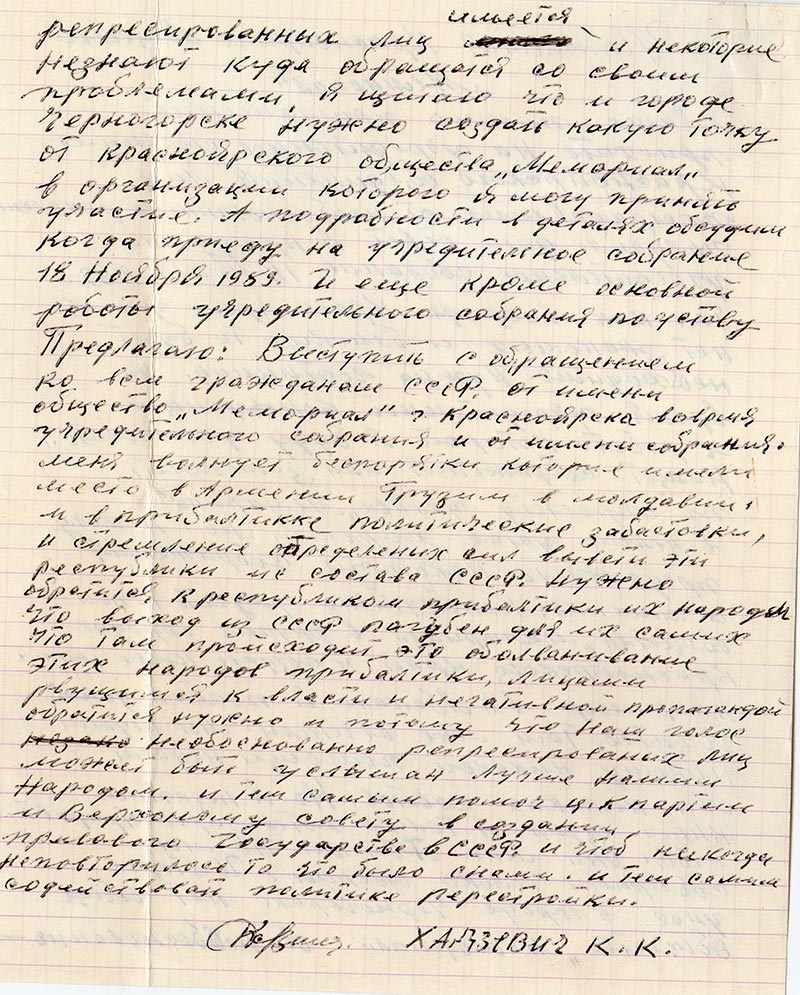 имеется
репресированных лиц и некоторые
незнают куда обращатся со своими
проблемами, я щитаю что и городе
Черногорске нужно создать какую точку
от Красноярского общества „Мемориал„
в организации которого я могу принять
участие. А подробности в деталях обсудим
когда приеду на учредительное собрание
18 Ноября 1989. И еще кроме основной
работы учредительного собрания по уставу
Предлагаю: Выступить с обращением
ко всем гражданам СССР. от имени
общество „Мемориал" г Красноярска вовремя
учредительного собрания и от имени собрания.
меня волнует беспорятки которые имели
место в Армении Грузии в молдавии,
и в прибалтикке политические забастовки,
и стремление определеных сил вывести эти
республики из состава СССР. нужно
обратится к республиком прибалтики их народам
что выход из СССР пагубен для их самих
что там происходит это оболванивание
этих народов прибалтики, лицами
рвущимися к власти и негативной пропагандой
обратится нужно и потому что наш голос
незако необоснованно репресированых лиц
может быть услышан лучше нашим
народом. и тем самым помоч ц.к партии
и Верховному совету в создании
правового Государства в СССР. и чтоб никогда
неповторилось то что было снами. и тем самым
содействовать политике перестройки.
ХАНЗЕВИЧ К. К.